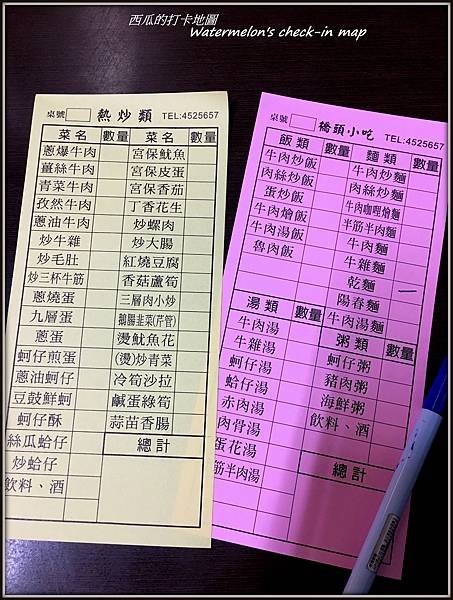 西瓜的打卡地圖
Watermelon's check-in map
桌號 熱炒類 TEL:4525657
菜名 數量 菜名 數量
蔥爆牛肉 宮保魷魚
薑絲牛肉 宮保皮蛋
青菜牛肉 宮保香菇
孜然牛肉 丁香花生
蔥油牛肉 炒螺肉
炒牛雜 炒大腸
炒毛肚 紅燒豆腐
炒三杯牛筋 香菇蘆筍
蔥燒蛋 三層肉小炒
九層蛋 鵝腸韭菜(芹管)
蔥蛋 燙魷魚花
蚵仔煎蛋 (燙)炒青菜
蔥油蚵仔 冷筍沙拉
豆鼓鮮蚵 鹹蛋綠筍
蚵仔酥 蒜苗香腸
絲瓜蛤仔 總計
炒蛤仔
飲料、酒
桌號 橋頭小吃 TEL:4525657
飯類 數量 麵類 數量
牛肉炒飯 牛肉炒麵
肉絲炒飯 肉絲炒麵
蛋炒飯 牛肉咖哩燴麵
牛肉燴飯 半筋半肉麵
牛肉湯飯 牛肉麵
魯肉飯 牛雜麵
乾麵
陽春麵
湯類 數量 牛肉湯麵
牛肉湯 粥類 數量
牛雜湯 蚵仔粥
蚵仔湯 豬肉粥
蛤仔湯 海鮮粥
赤肉湯 飲料、酒
肉骨湯
蛋花湯 總計
筋半肉湯